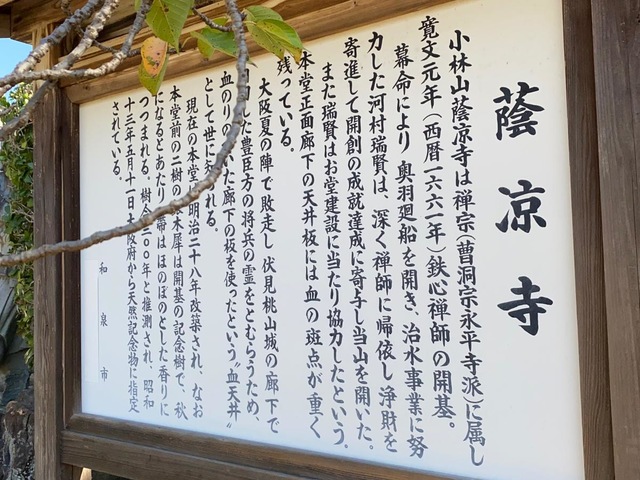 蔭凉寺
小林山蔭凉寺は禅宗(曹洞宗永平寺派)に属し
寛文元年(西暦一六六一年)鉄心禅師の開基。
幕命により奥羽廻船を開き、治水事業に努
力した河村瑞賢は、深く禅師に帰依し浄財を
寄進して開創の成就達成に寄与し当山を開いた。
また瑞賢はお堂建設に当たり協力したという。
本堂正面廊下の天井板には血の斑点が重く
残っている。
大阪夏の陣で敗走し伏見桃山城の廊下で
した豊臣方の将兵の霊をとむらうため、
血のりの いた廊下の板を使ったという"血天井"
として世に れる。
現在の本堂 明治二十八年改築され、なお
本堂前の二樹の 木犀は開基の記念樹で、秋
になるとあたり 帯はほのぼのとした香りに
つつまれる。樹令三〇〇年と推測され、昭和
十三年五月十一日大阪府から天然記念物に指定
されている。
和泉市